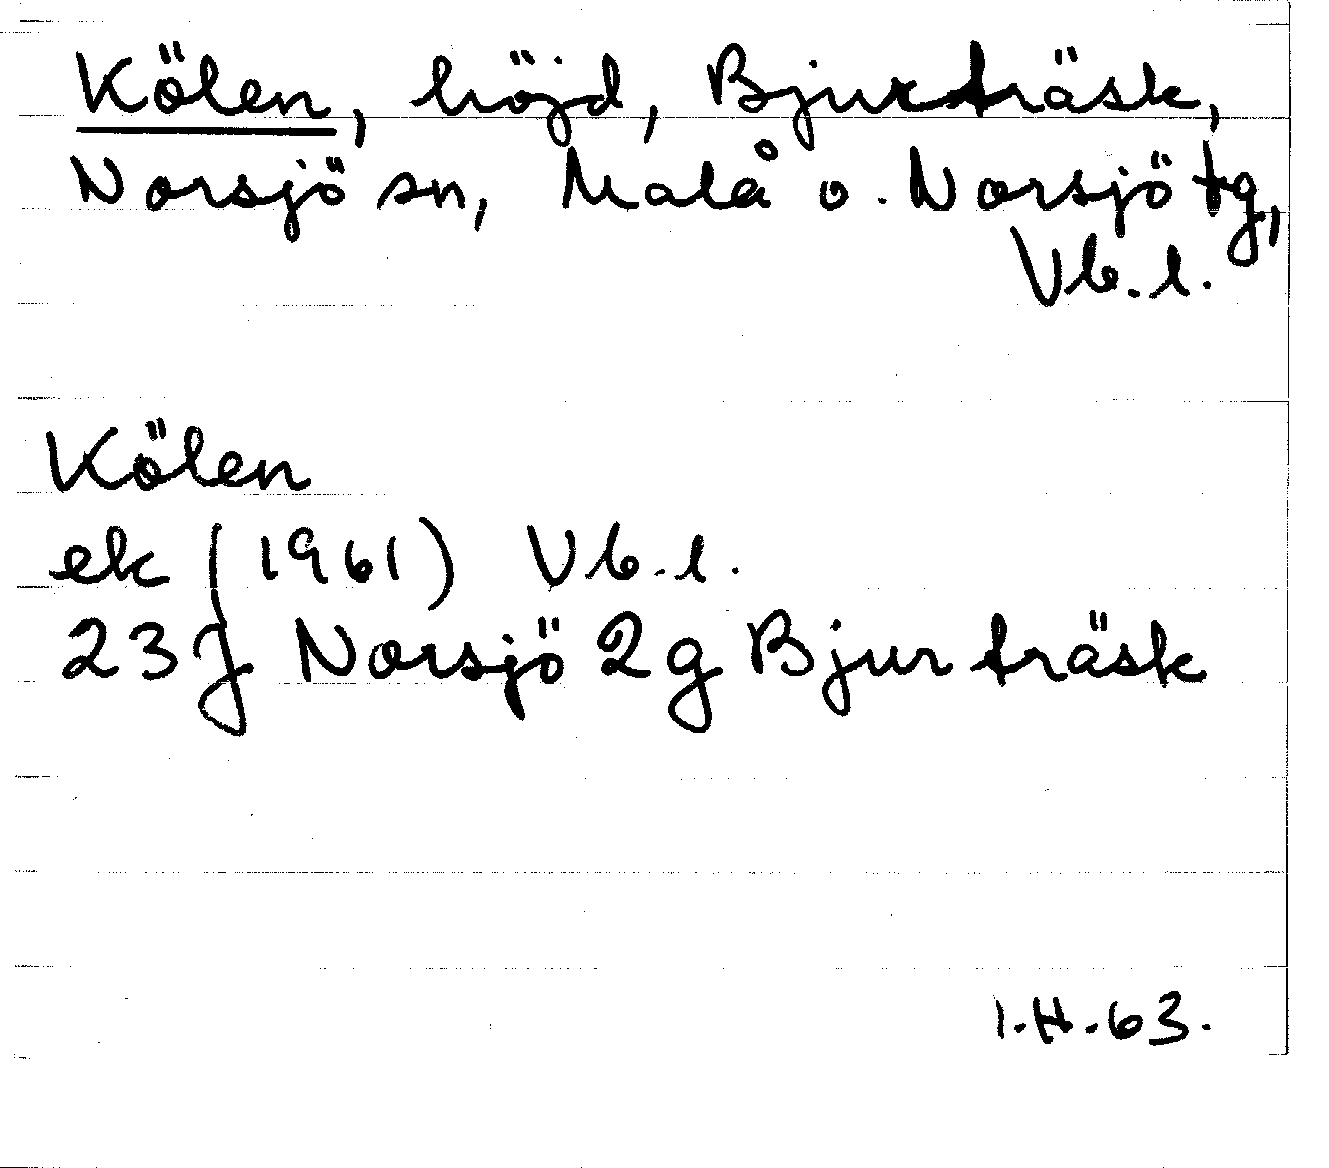 Kölen, höjd, Bjurträsk,
Norsjö sn, Malå o. Norsjö tg,
Vb.l.
Kölen
ek (1961) Vb.l.
23J Norsjö 2g Bjurträsk
I.H.63.